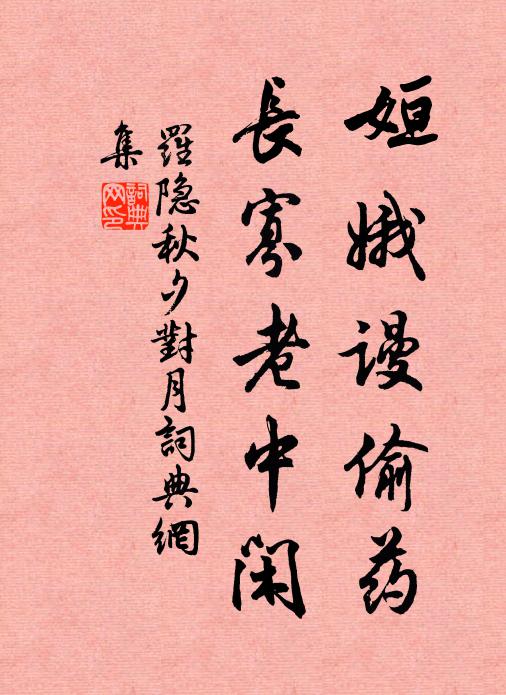 姮娥謾偷药
長寡老中閑
羅隐秋夕對月詞典網
集
詞典网印